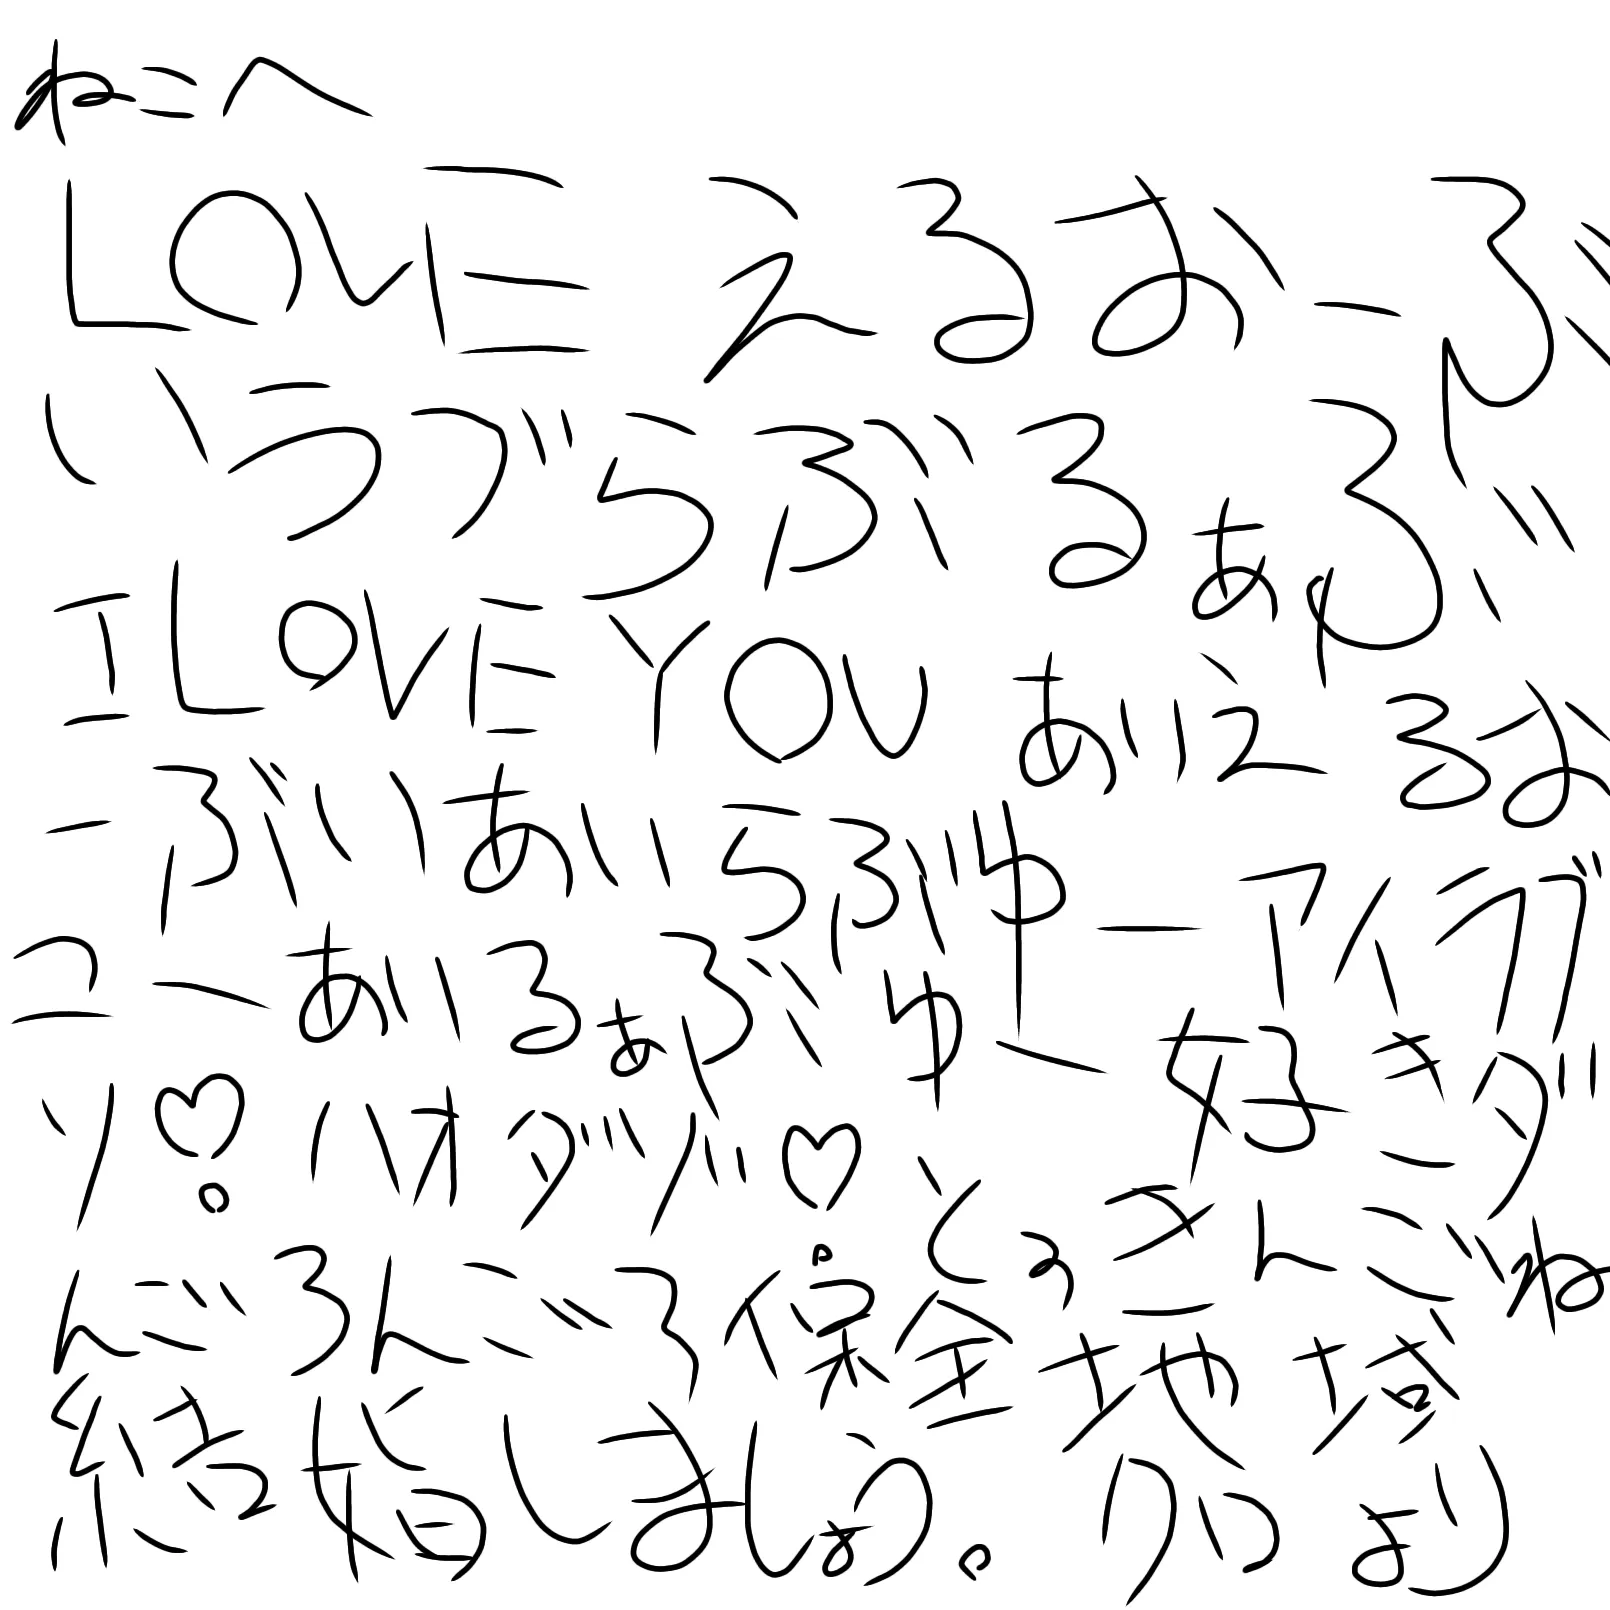 ねこへ
LOVE えるおーぶ
いうづらぶ るぁぶ
I LOVE YOU あいえるお
ーぶいあいらぶゆーアイラブ
ユーあいるぁぶゆー好きダ
ソ♡。ハオダゾ♡。とぅさんごね
んごろんごろ保全地域
結婚しましょう。クロより